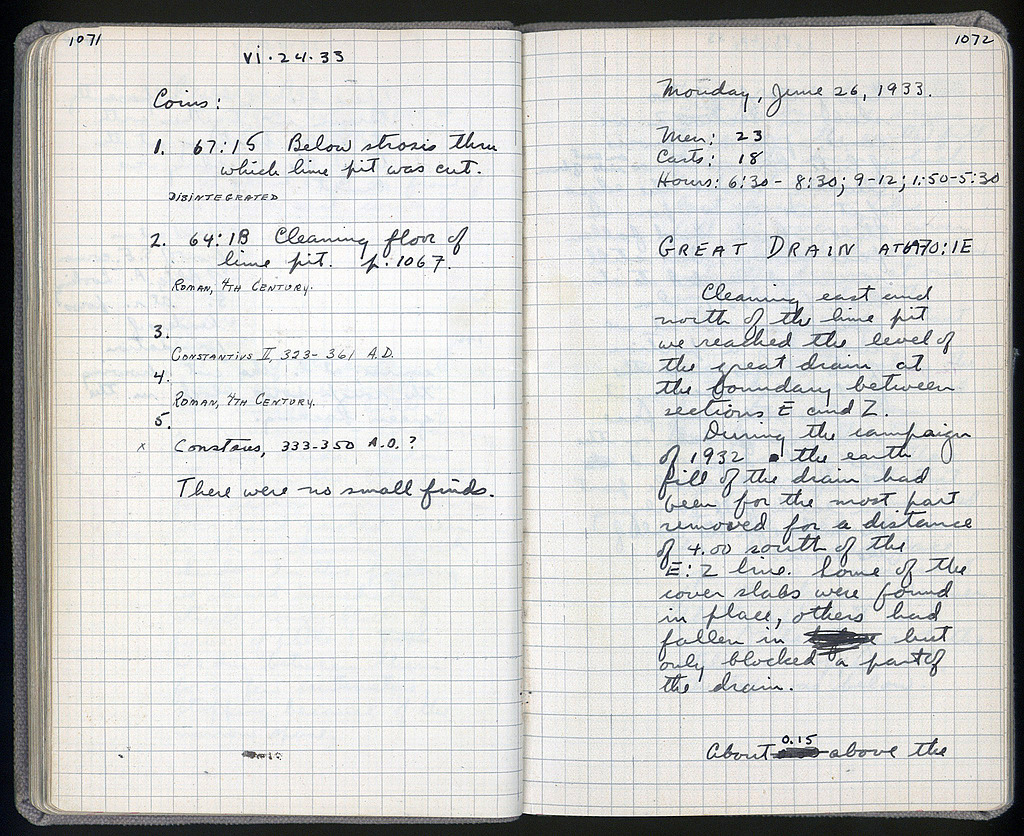 1071
vi.24.33
Coins:
1. 67:15 Below strosis thru
which lime pit was cut.
DISINTEGRATED
2. 64:1B Cleaning floor of
lime pit. p. 1067.
ROMAN, 4TH CENTURY.
3.
CONSTANTIUS II, 323-361 A.D.
4.
ROMAN, 4TH CENTURY.
5.
x Constans, 333-350 A.D.?
There were no small finds.
1072
Monday, June 26, 1933.
Men: 23
Carts: 18
Hours: 6:30 - 8:30; 9-12; 1:50-5:30
GREAT DRAIN AT :1E
Cleaning east and
north of the lime pit
we reached the level of
the great drain at
the boundary between
sections E and Z.
During the campaign
of 1932 the earth
fill of the drain had
been for the most part
removed for a distance
of 4.00 south of the
E:Z line. Some of the
cover slabs were found
in place, others had
fallen in but
only blocked a part of
the drain.
About 0.15 above the